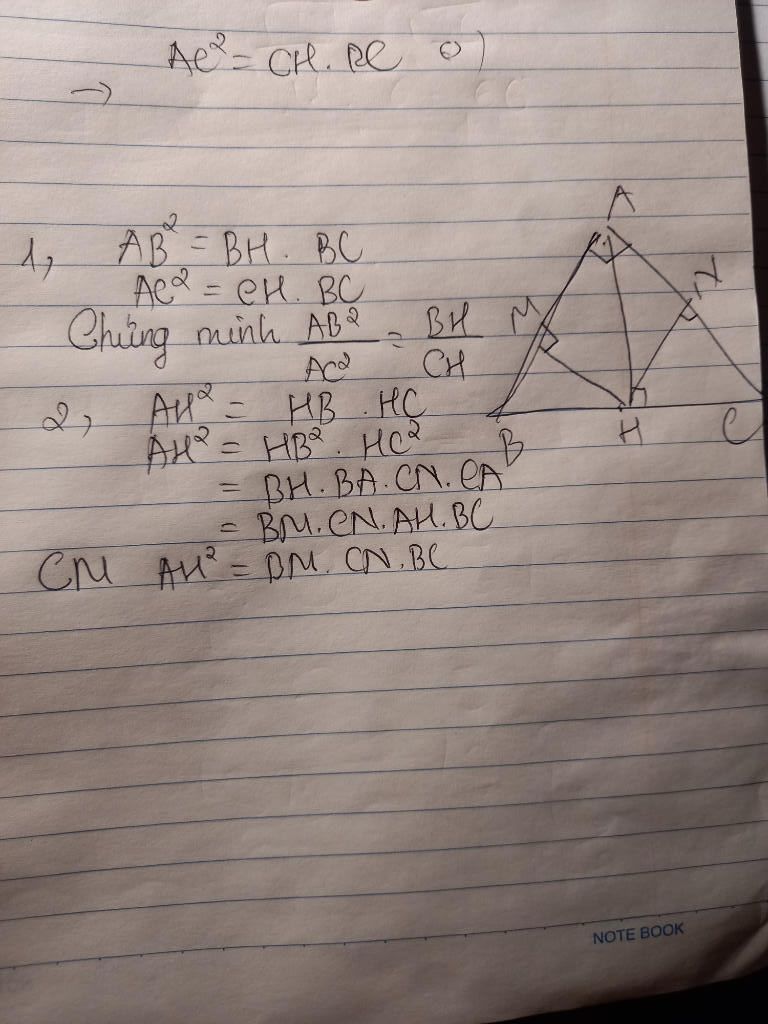 AC² = CH. BC
→
1, AB² = BH. BC
AC² = CH. BC
Chứng minh AB²/AC² = BH/CH
2, AH² = HB . HC
AH² = HB² . HC²
= BH. BA. CN. CA
= BM. CN. AH. BC
CM AH² = BM. CN. BC
A
M
N
B
H
C
NOTE BOOK